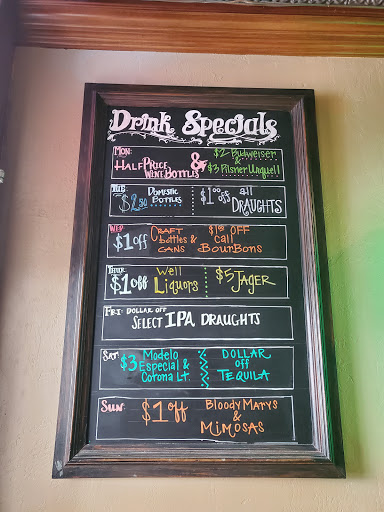 Drink Specials
MON: HALF PRICE WINE BOTTLES & $2 Budweiser & $3 Pilsner Urquell
TUE: $2.50 DOMESTIC BOTTLES $1.00 off all DRAUGHTS
WED $1 off CRAFT bottles & CANS $1.00 OFF Call BourBons
THUR: $1 off Well Liquors $5 JAGER
FRI: DOLLAR off SELECT IPA DRAUGHTS
SAT: $3 Modelo Especial & Corona Lt. DOLLAR off TEQUILA
SUN: $1 off BLOODY MARYS & MIMOSAS